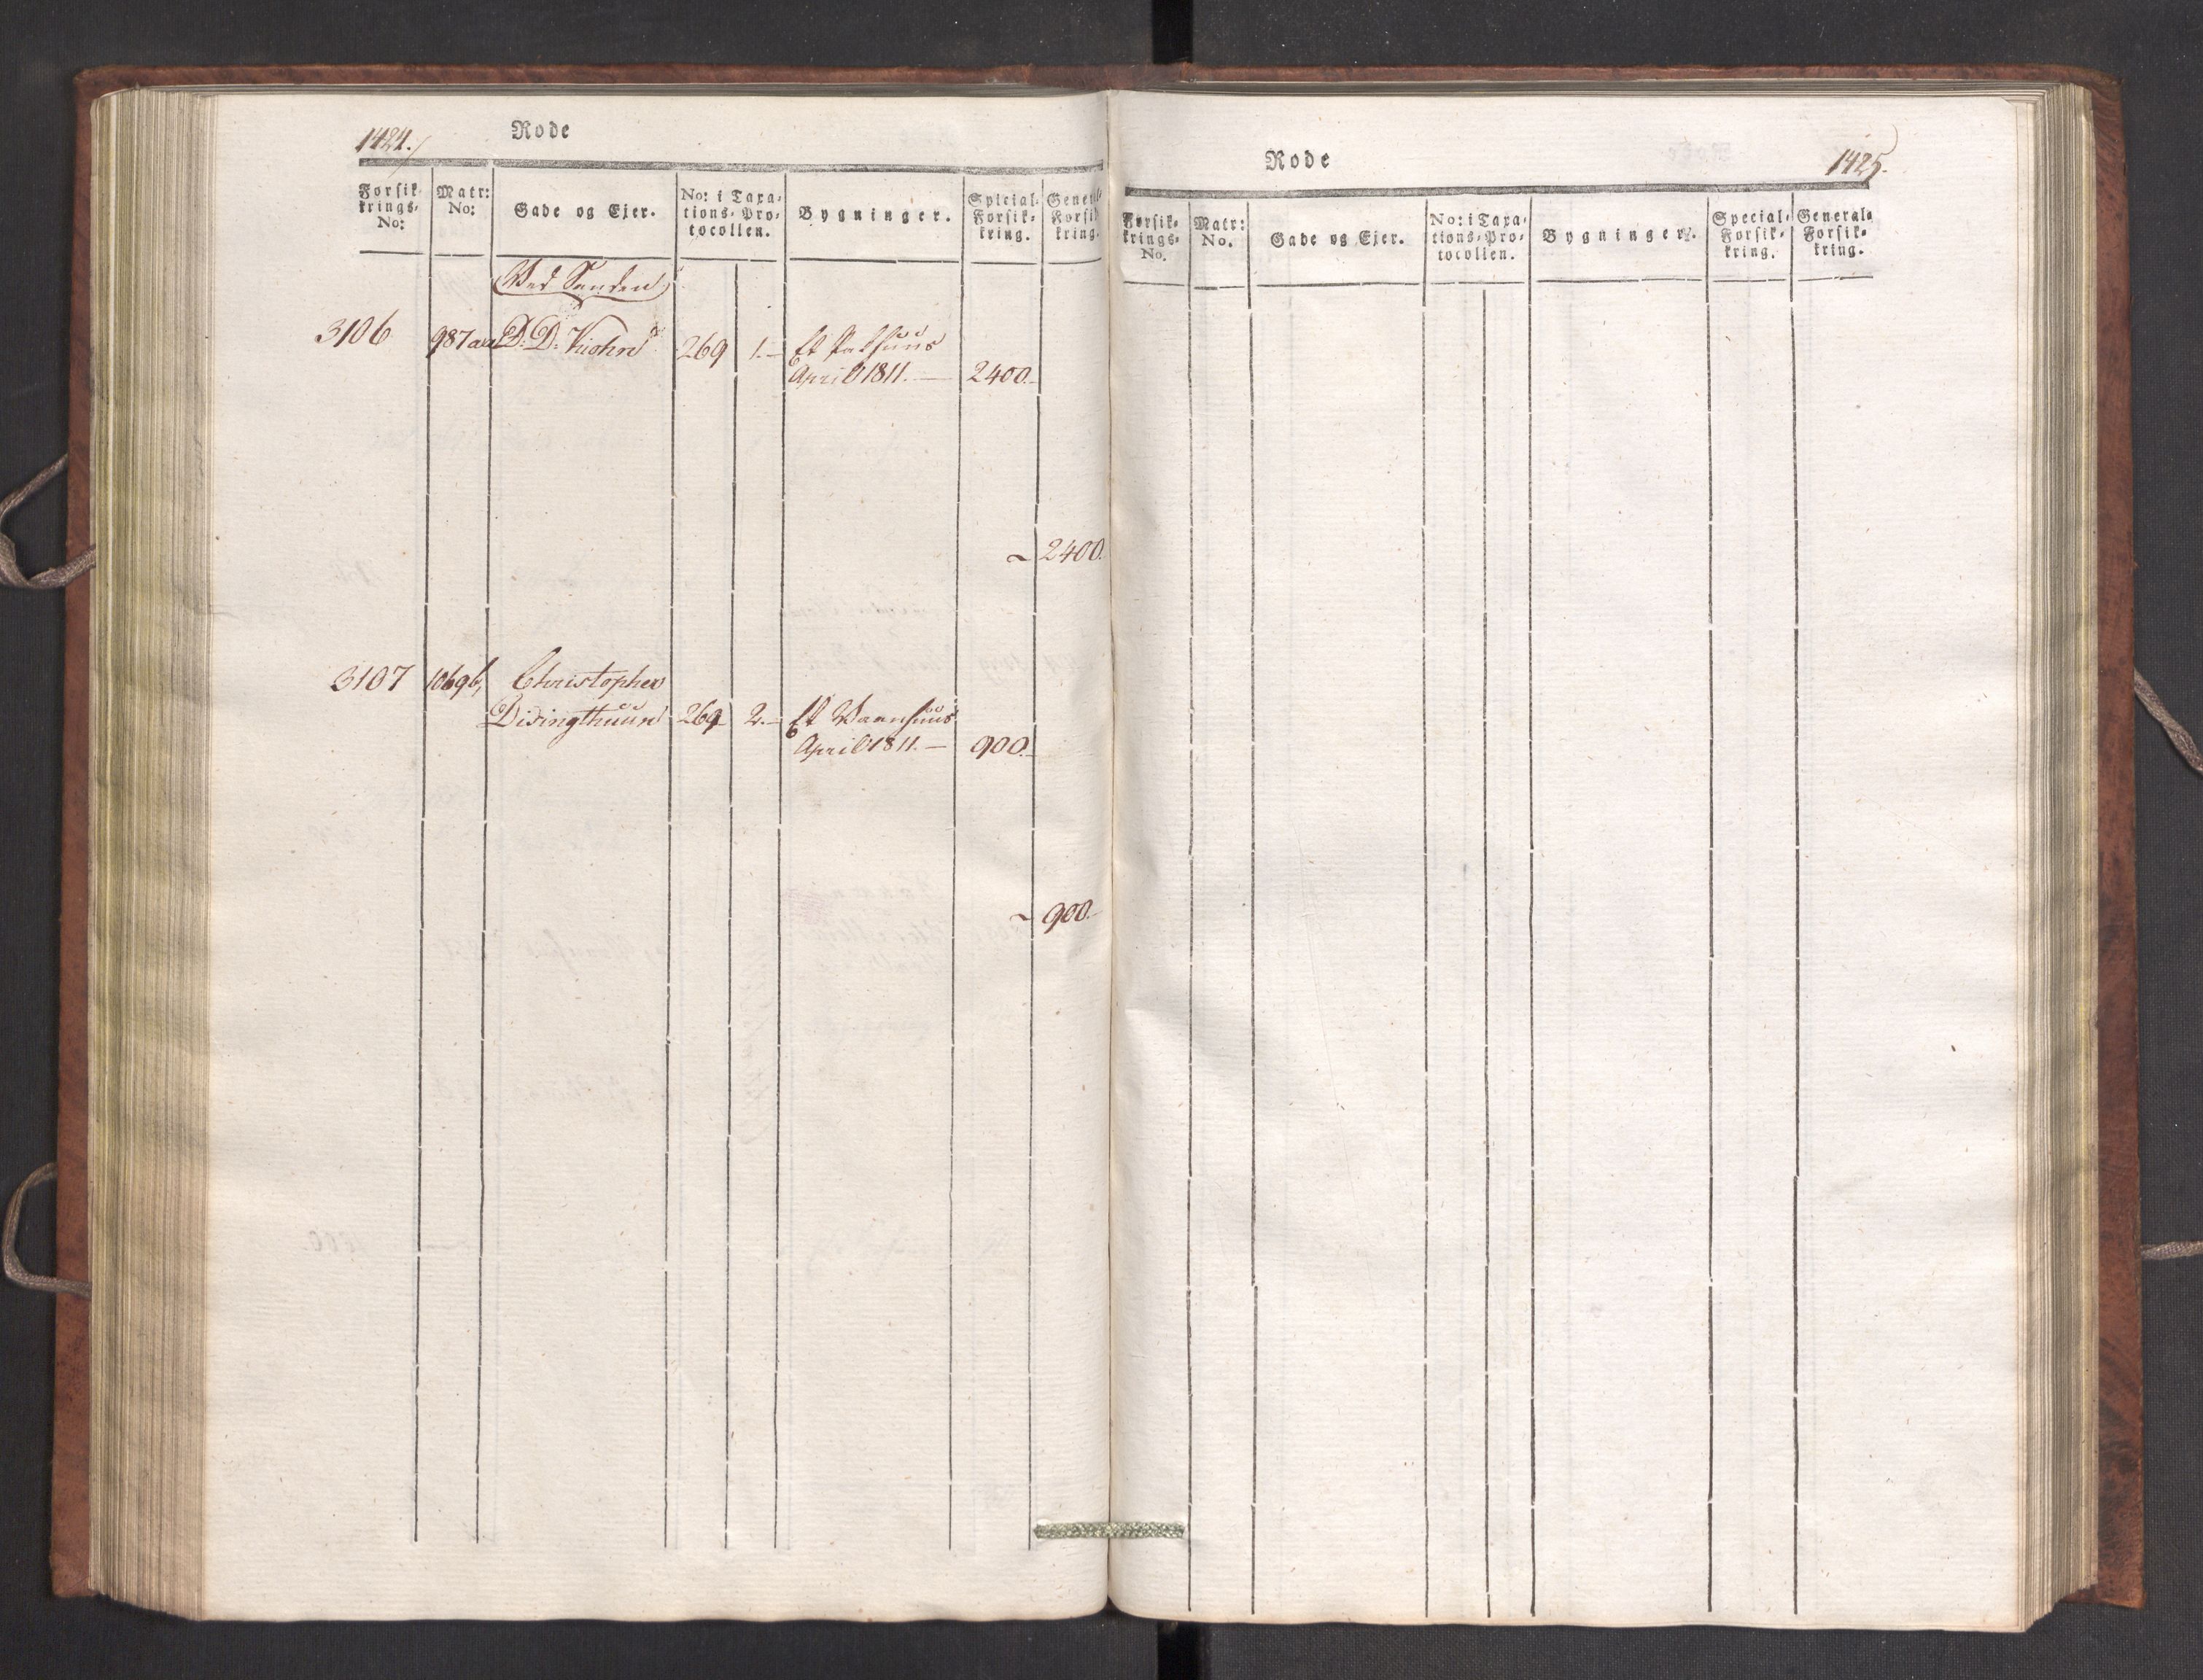 1424.
Rode
Forsik-
krings-
No:
Matr:
No:
Gade og Ejer.
No: i Taxa-
tions-Pro-
tocollen.
Bygninger.
Special-
Forsik-
kring.
General-
Forsik-
kring.
Ved Sanden
3106 987 D: D: 269 1.- Et Pakhuus
April 1811. — 2400.-
~ 2400.
3107 1069b, Christopher
269 2.- Et Vaanhuus
April 1811. — 900.-
~ 900.-
Rode
1425.
Forsik-
krings-
No.
Matr:
No.
Gade og Ejer.
No: i Taxa-
tions-Pro-
tocollen.
Bygninger.
Special-
Forsik-
kring.
General-
Forsik-
kring.